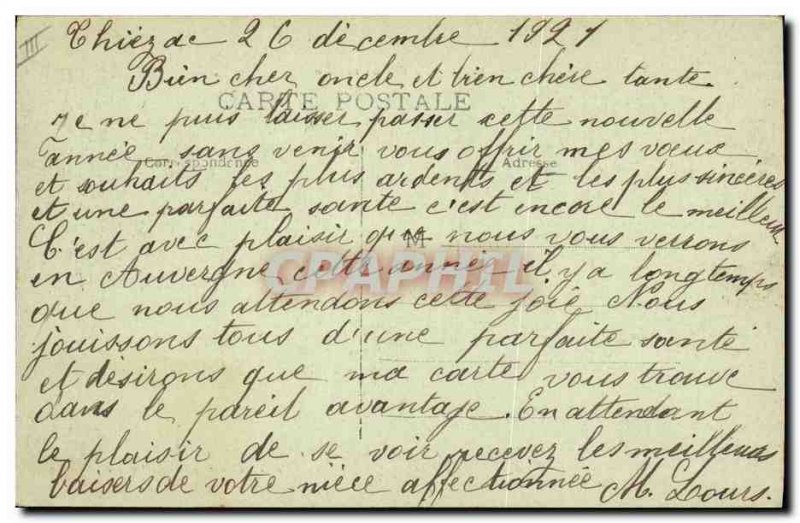 III
Thiézac 26 décembre 1921
Bien cher oncle et bien chère tante
CARTE POSTALE
Je ne puis laisser passer cette nouvelle
année sans venir vous offrir mes vœux
Correspondance Adresse
et souhaits les plus ardents et les plus sincères
et une parfaite santé c'est encore le meilleur
C'est avec plaisir que nous vous verrons
M
en Auvergne cette année il y a longtemps
CPAPHIL
que nous attendons cette joie Nous
jouissons tous d'une parfaite santé
et désirons que ma carte vous trouve
dans le pareil avantage. En attendant
le plaisir de se voir recevez les meilleurs
baisers de votre nièce affectionnée M. Lours.